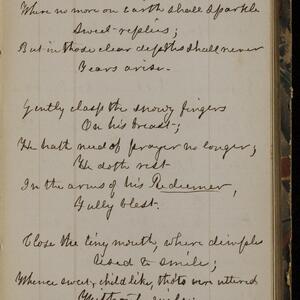 Where no more on earth shall sparkle
Sweet replies;
But in those clear depths shall never
Tears arise.
Gently clasp the snowy fingers
On his breast;
He hath need of prayer no longer;
He doth rest
In the arms of his Redeemer,
Fully blest.
Close the tiny mouth, where dimples
Used to smile;
Whence sweet, child like, tho'ts were uttered